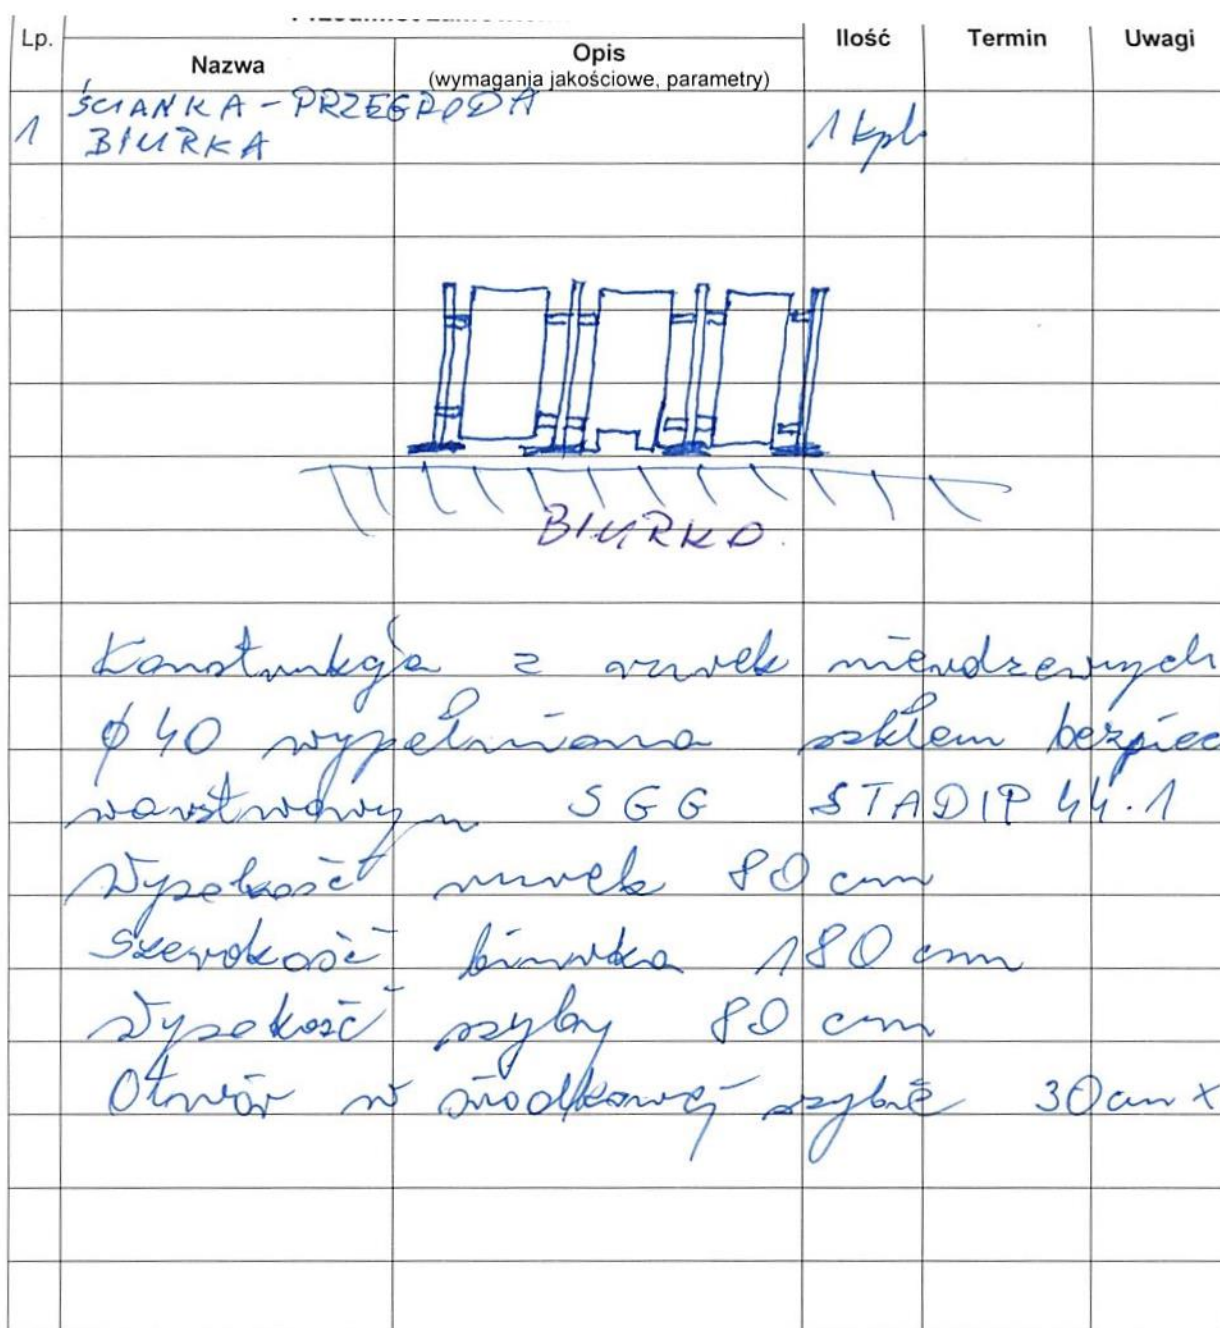 Lp.
Ilość
Termin
Uwagi
Nazwa
Opis
(wymagania jakościowe, parametry)
1
ŚCIANKA - PRZEGRODA
BIURKA
1 kpl
BIURKO.
Konstrukcja z rurek nierdzewnych
ϕ 40 wypełniona szkłem bezpiec
warstwowym SGG STADIP 44.1
Wysokość rurek 80 cm
Szerokość biurka 180 cm
Wysokość szyby 80 cm
Otwór w środkowej szybie 30 cm x